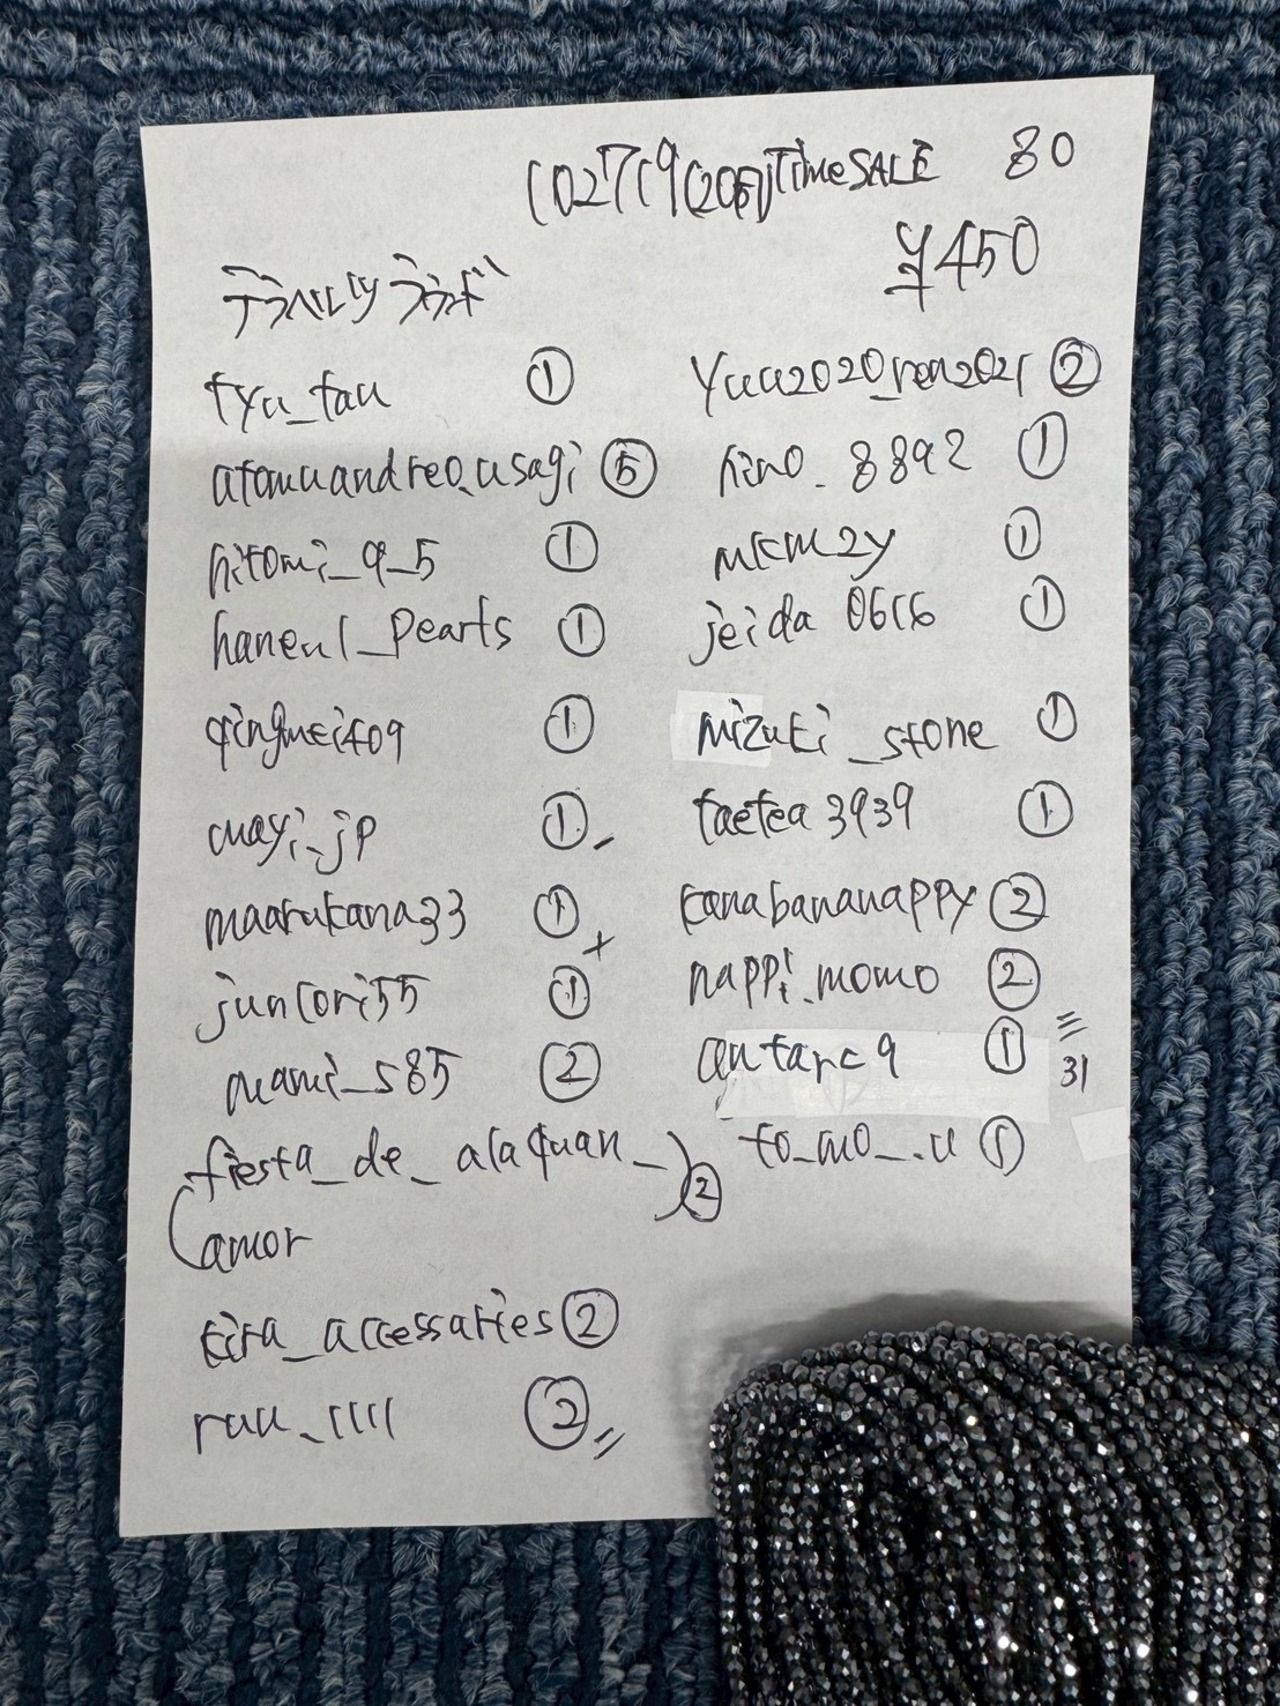 TimeSALE 80
¥450
テラヘルツ
tyu_tau ①
atomuandreo.usagi ⑤
hitomi_9_5 ①
haneul_pearls ①
qingmei409 ①
mayi_jp ①
maarukana33 ①
juncori55 ①
mami_s85 ②
fiesta_de_alaquan_
amor ②
kira_accessaries ②
ruu_1111 ②
yuu2020_ren2021 ②
hino_8892 ①
mkm2y ①
jeida0616 ①
mizuki_stone ①
taetea3939 ①
kanabananappy ②
nappi.momo ②
antarc9 ①
31
to_mo_.u ①